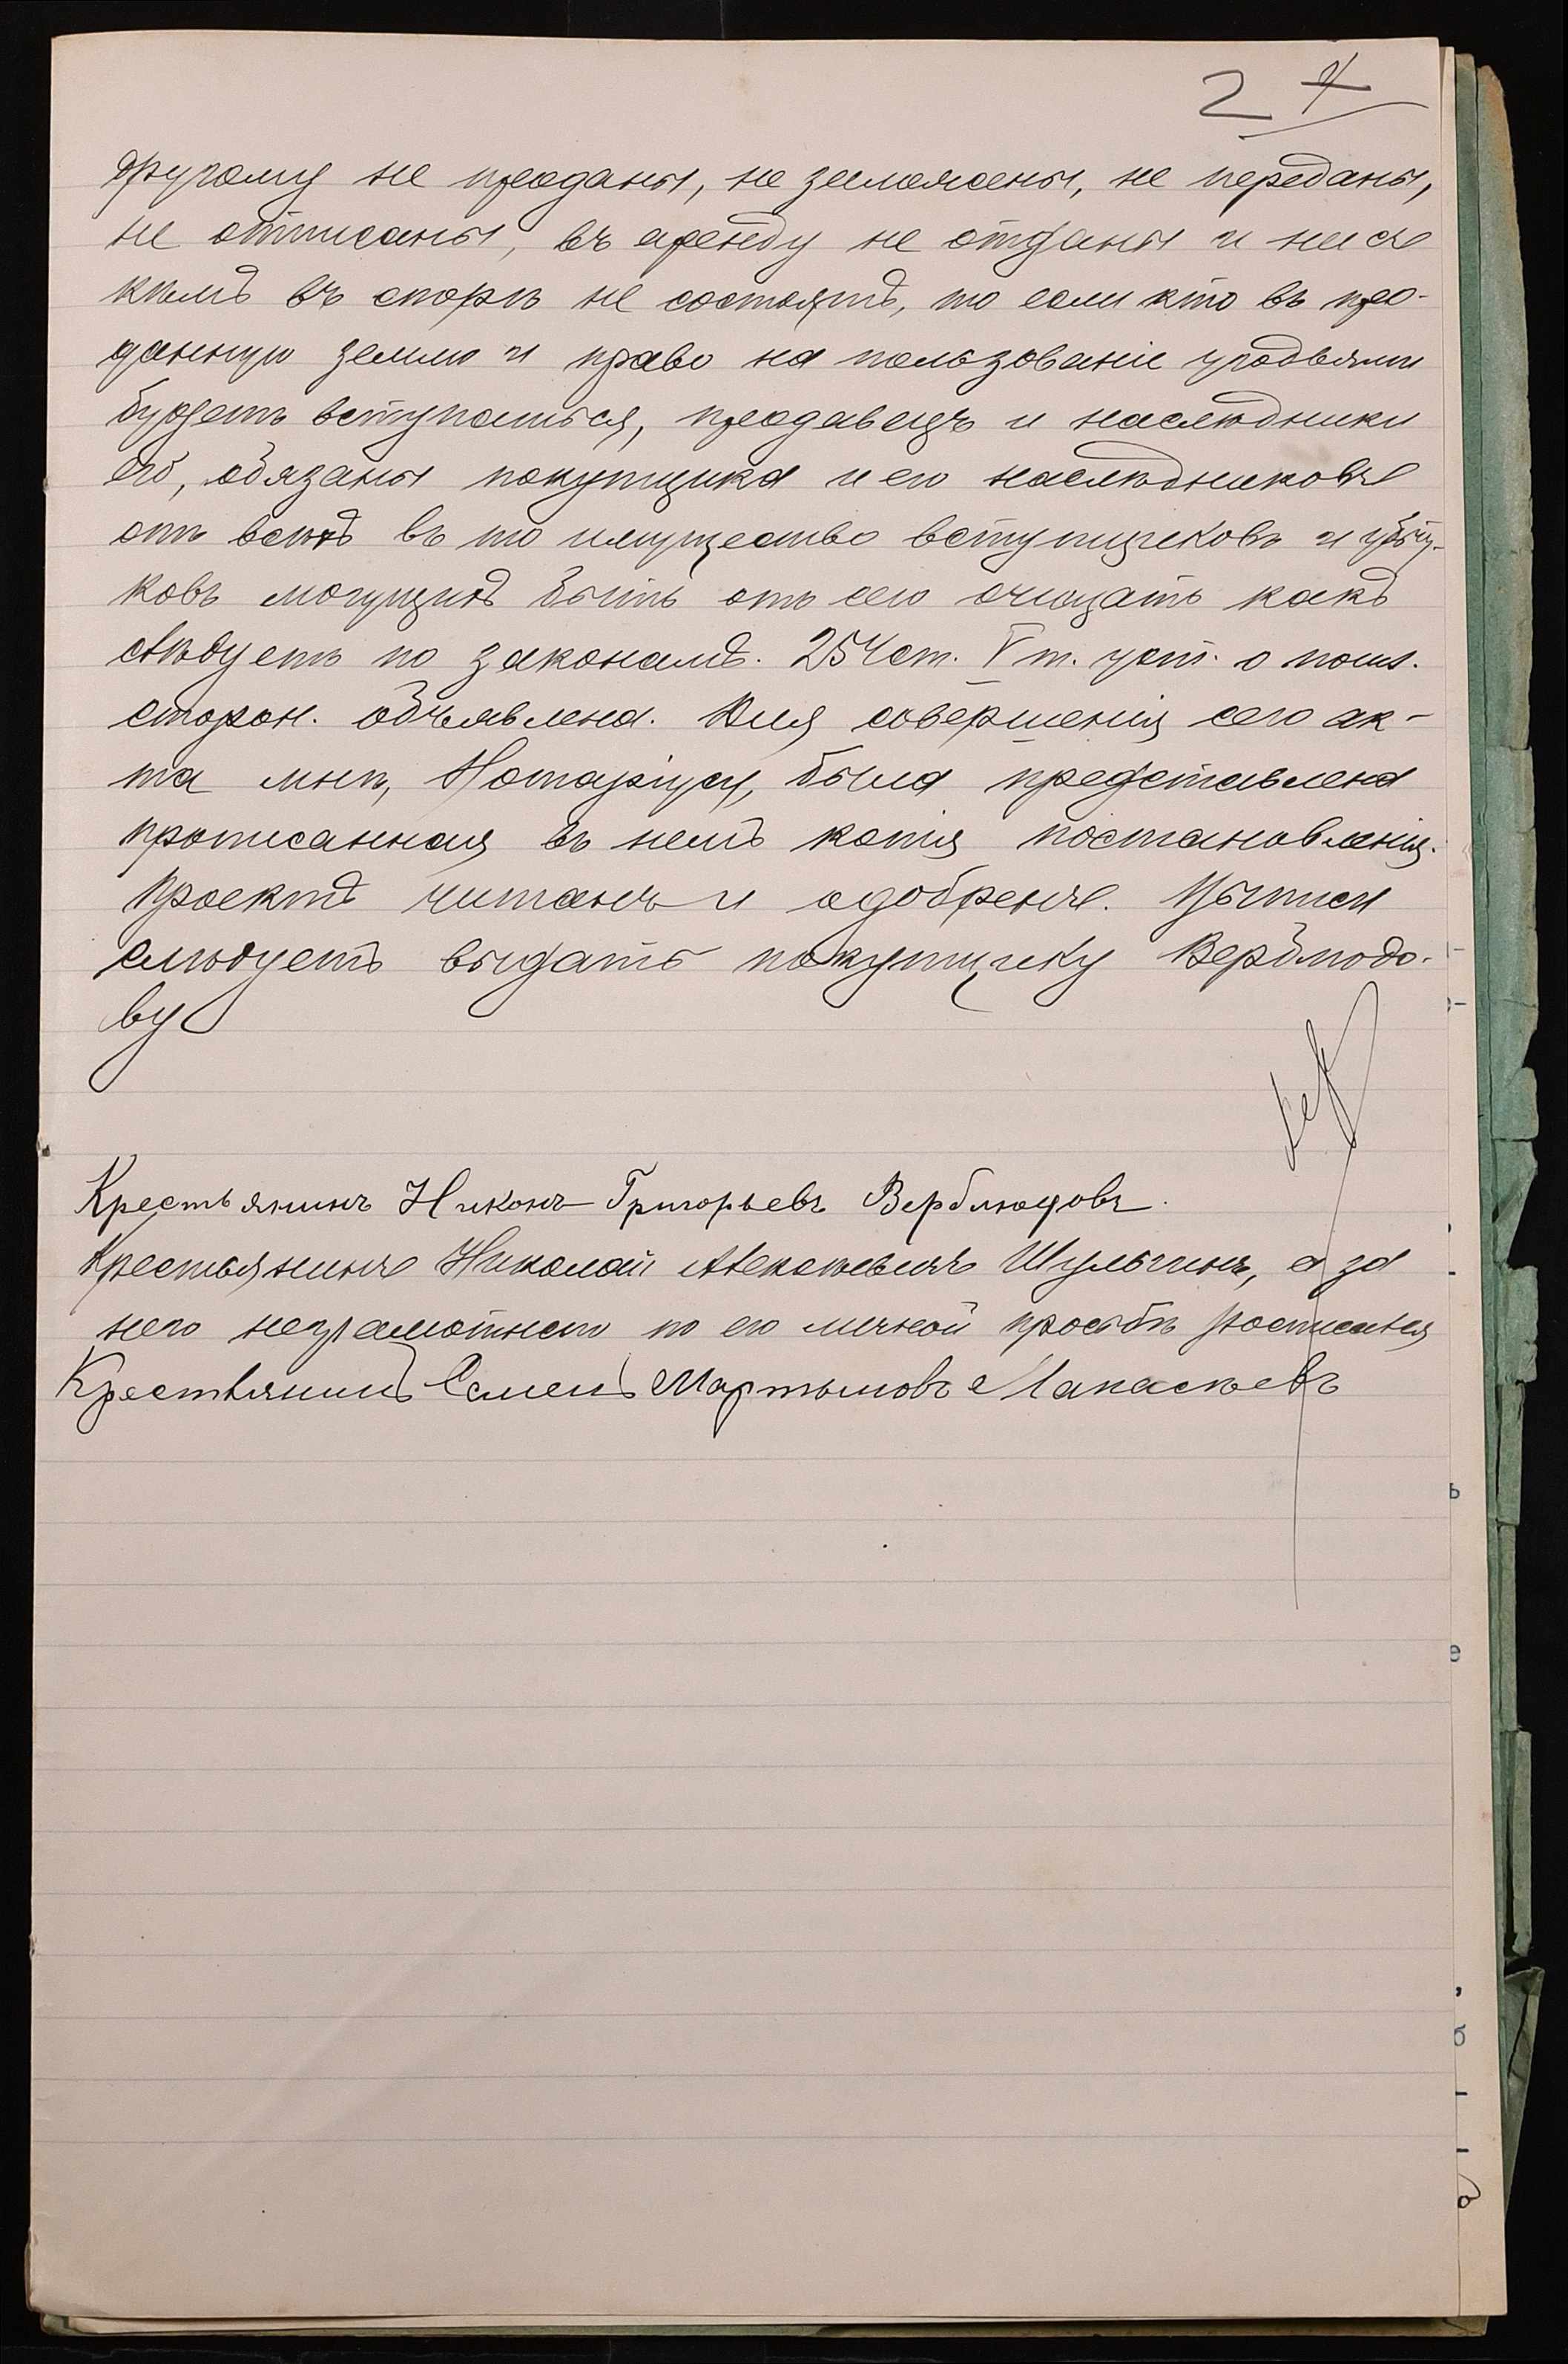 2 4
другому не проданы, не заложены, не переданы,
не отписаны, въ аренду не отданы и ни съ
кѣмъ въ спорѣ не состоятъ, то если кто въ про-
данную землю и право на пользованіе угодьями
будетъ вступаться, продавецъ и наслѣдники
его, обязаны покупщика и его наслѣдниковъ
отъ всѣхъ въ то имущество вступщиковъ и убыт-
ковъ могущихъ быть отъ сего очищать какъ
слѣдуетъ по законамъ. 254 ст. V т. уст. о пошл.
сторон. объявлена. Для совершенія сего ак-
та мнѣ, Нотаріусу, была представлена
прописанная въ немъ копія постановленія.
Проектъ читанъ и одобренъ. Выпись
слѣдуетъ выдать покупщику Верблюдо-
ву
Крестьянинъ Никонъ Григорьевъ Верблюдовъ.
Крестьянинъ Николай Алексѣевичъ Шульгинъ, а за
него неграмотнаго по его личной просьбѣ росписался
Крестьянинъ Семенъ Мартыновъ